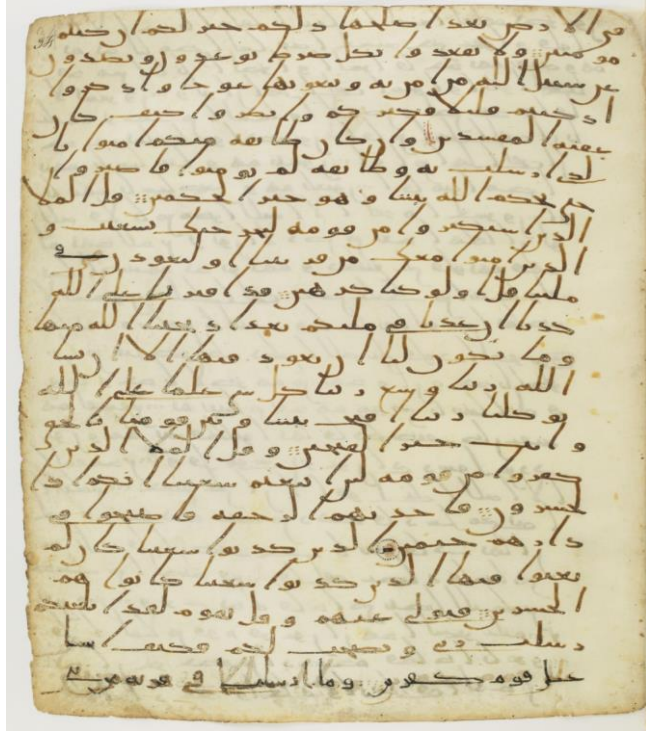 فى الارض بعد اصلحها ذلكم خير لكم ان كنتم
مومنين ولا تقعدوا بكل صرط توعدون وتصدون
عن سبيل الله من امن به وتبغونها عوجا واذكروا
اذ كنتم قليلا فكثركم وانظروا كيف كان
عقبة المفسدين وان كان طيفة منكم امنوا با
لذى ارسلت به وطيفة لم يومنوا فاصبروا
حتى يحكم الله بيننا وهو خير الحكمين قال الملا
الذين استكبروا من قومه لنخرجنك يشعيب و
الذين امنوا معك من قريتنا او لتعودن فى
ملتنا قال اولو كنا كرهين قد افترينا على الله
كذبا ان عدنا فى ملتكم بعد اذ نجينا الله منها
وما يكون لنا ان نعود فيها الا ان يشا
الله ربنا وسع ربنا كل شى علما على الله
توكلنا ربنا افتح بيننا وبين قومنا بالحق
وانت خير الفتحين وقال الملا الذين
كفروا من قومه لين اتبعتم شعيبا انكم اذا
لخسرون فاخذتهم الرجفة فاصبحوا فى
دارهم جثمين الذين كذبوا شعيبا كان لم
يغنوا فيها الذين كذبوا شعيبا كانوا هم
الخسرين فتولى عنهم وقال يقوم لقد ابلغتكم
رسلت ربى ونصحت لكم فكيف اسا
على قوم كفرين وما ارسلنا فى قرية من نبى